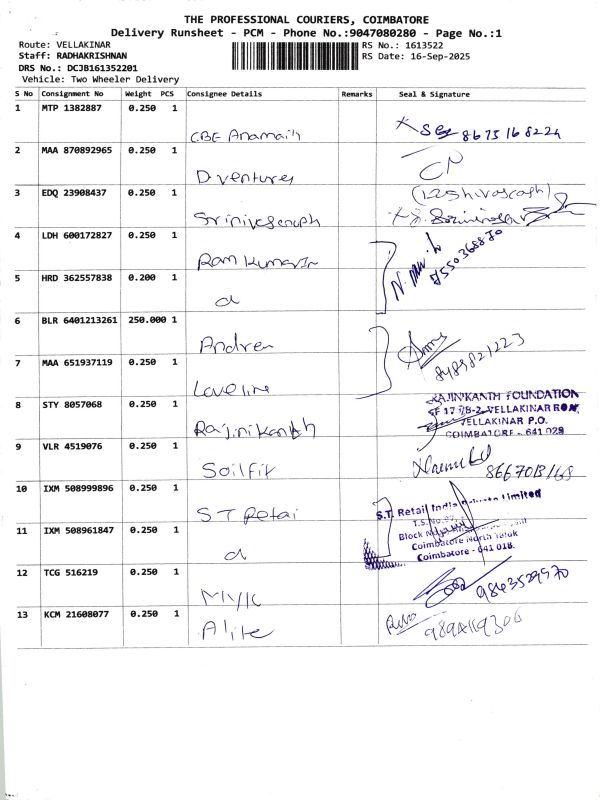 THE PROFESSIONAL COURIERS, COIMBATORE
Delivery Runsheet - PCM - Phone No.:9047080280 - Page No.:1
Route: VELLAKINAR RS No.: 1613522
Staff: RADHAKRISHNAN RS Date: 16-Sep-2025
DRS No.: DCJB161352201
Vehicle: Two Wheeler Delivery
S No Consignment No Weight PCS Consignee Details Remarks Seal & Signature
1 MTP 1382887 0.250 1
CBE 8675168224
2 MAA 870892965 0.250 1
D ventures
3 EDQ 23908437 0.250 1
4 LDH 600172827 0.250 1
Ram Kumar
5 HRD 362557838 0.200 1
d
6 BLR 6401213261 250.000 1
Andrea 8489821223
7 MAA 651937119 0.250 1
Loveline
8 STY 8057068 0.250 1
Rajinikanth
RAJINIKANTH FOUNDATION
VELLAKINAR P.O.
COIMBATORE - 641 029
9 VLR 4519076 0.250 1
Soilfit
10 IXM 508999896 0.250 1
S T Retai
S.T. Retail India Private Limited
11 IXM 508961847 0.250 1
d
Coimbatore North Taluk
Coimbatore - 641 018.
12 TCG 516219 0.250 1
9863529970
13 KCM 21608077 0.250 1
Alite